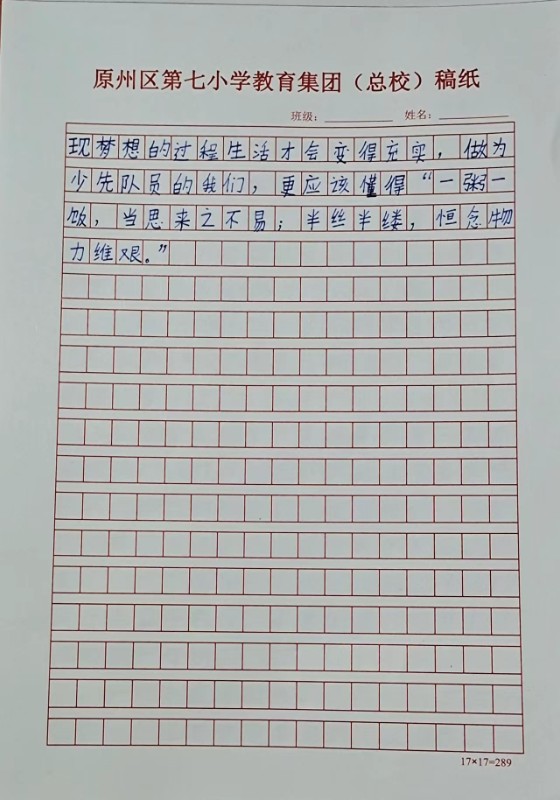 原州区第七小学教育集团（总校）稿纸
班级：
姓名：
现梦想的过程生活才会变得充实，做为
少先队员的我们，更应该懂得“一粥一
饭，当思来之不易；半丝半缕，恒念物
力维艰。”
17×17=289